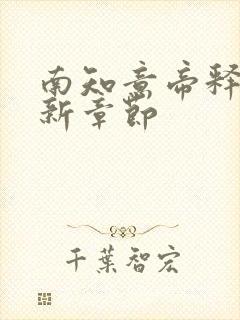 南知意帝释
新章节
千叶智宏